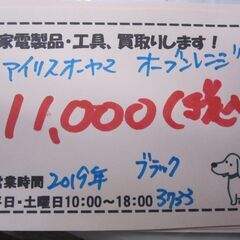 家電製品・工具、買取りします!
アイリスオーヤマ オーブンレンジ
11,000(税込
営業時間 2019年 ブラック
平日・土曜日10:00〜18:00 3733